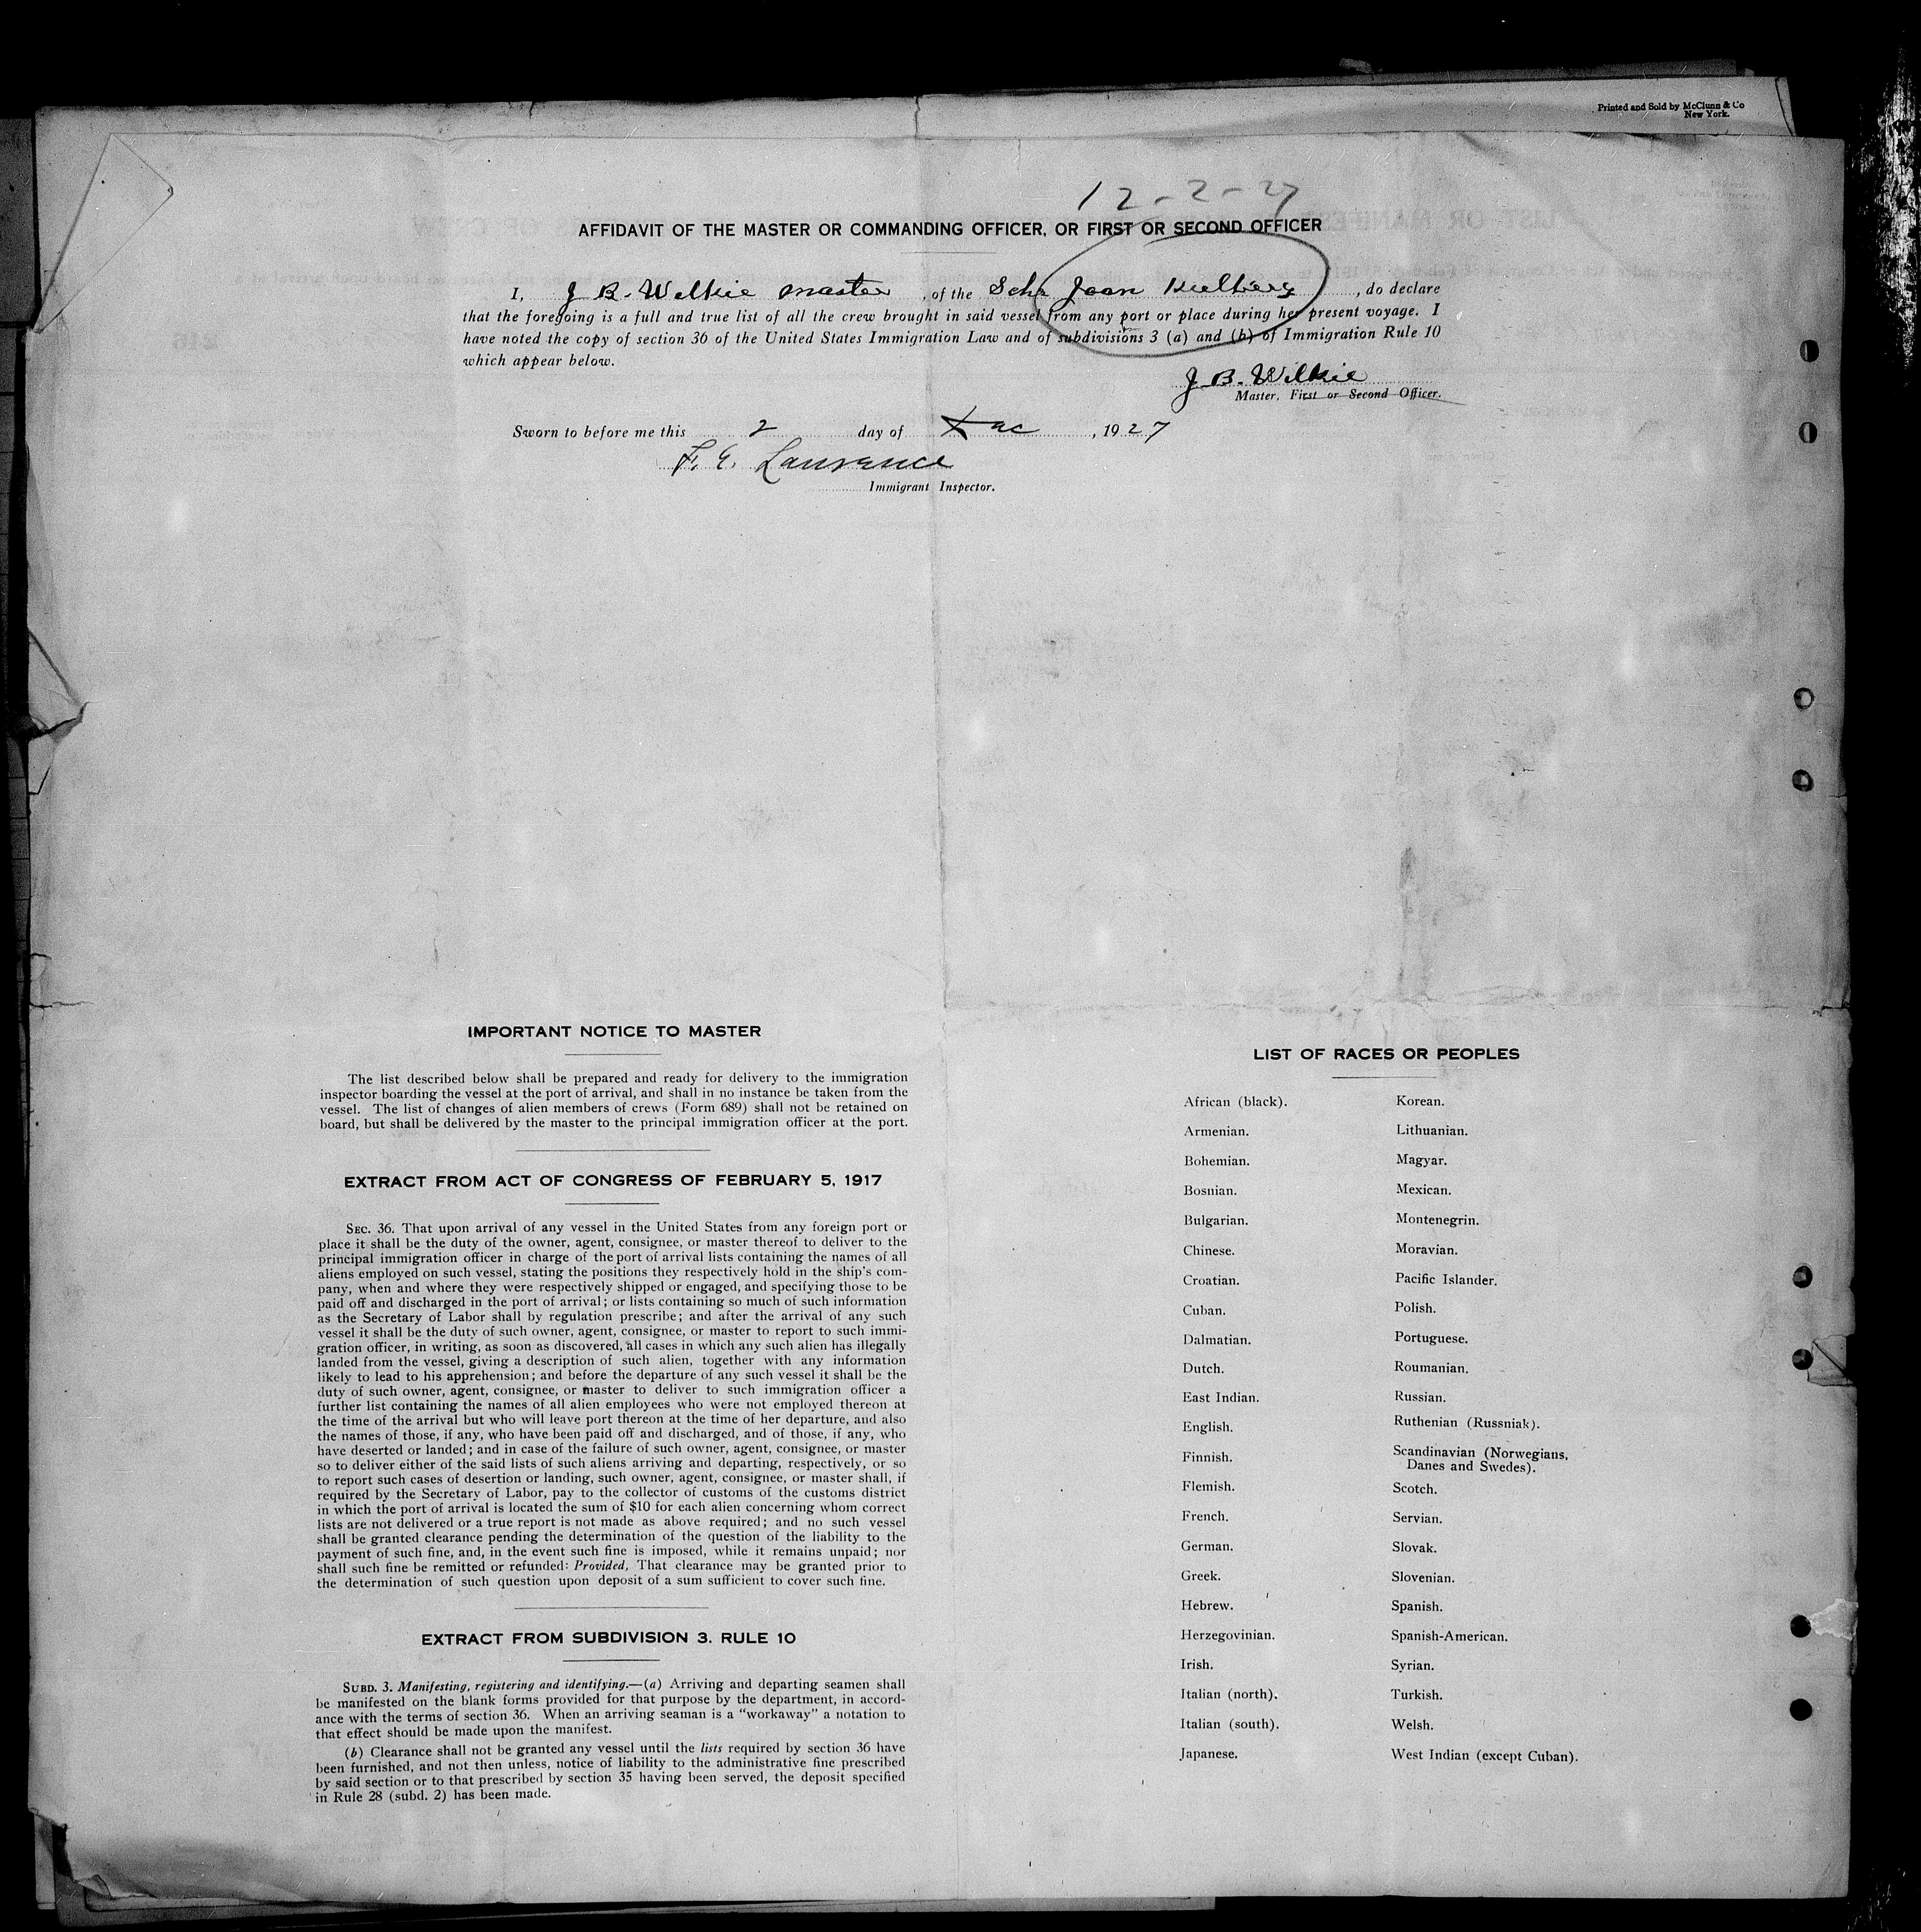 Printed and Sold by McClunn & Co
New York.
12-2-27
AFFIDAVIT OF THE MASTER OR COMMANDING OFFICER, OR FIRST OR SECOND OFFICER
I, J B. Wilkie master, of the Schr Joan Kielberg, do declare
that the foregoing is a full and true list of all the crew brought in said vessel from any port or place during her present voyage. I
have noted the copy of section 36 of the United States Immigration Law and of subdivisions 3 (a) and (b) of Immigration Rule 10
which appear below.
J B. Wilkie
Master, First or Second Officer.
Sworn to before me this 2 day of Dec, 1927
F. E. Laurance
Immigrant Inspector.
IMPORTANT NOTICE TO MASTER
The list described below shall be prepared and ready for delivery to the immigration
inspector boarding the vessel at the port of arrival, and shall in no instance be taken from the
vessel. The list of changes of alien members of crews (Form 689) shall not be retained on
board, but shall be delivered by the master to the principal immigration officer at the port.
EXTRACT FROM ACT OF CONGRESS OF FEBRUARY 5, 1917
SEC. 36. That upon arrival of any vessel in the United States from any foreign port or
place it shall be the duty of the owner, agent, consignee, or master thereof to deliver to the
principal immigration officer in charge of the port of arrival lists containing the names of all
aliens employed on such vessel, stating the positions they respectively hold in the ship's com-
pany, when and where they were respectively shipped or engaged, and specifying those to be
paid off and discharged in the port of arrival; or lists containing so much of such information
as the Secretary of Labor shall by regulation prescribe; and after the arrival of any such
vessel it shall be the duty of such owner, agent, consignee, or master to report to such immi-
gration officer, in writing, as soon as discovered, all cases in which any such alien has illegally
landed from the vessel, giving a description of such alien, together with any information
likely to lead to his apprehension; and before the departure of any such vessel it shall be the
duty of such owner, agent, consignee, or master to deliver to such immigration officer a
further list containing the names of all alien employees who were not employed thereon at
the time of the arrival but who will leave port thereon at the time of her departure, and also
the names of those, if any, who have been paid off and discharged, and of those, if any, who
have deserted or landed; and in case of the failure of such owner, agent, consignee, or master
so to deliver either of the said lists of such aliens arriving and departing, respectively, or so
to report such cases of desertion or landing, such owner, agent, consignee, or master shall, if
required by the Secretary of Labor, pay to the collector of customs of the customs district
in which the port of arrival is located the sum of $10 for each alien concerning whom correct
lists are not delivered or a true report is not made as above required; and no such vessel
shall be granted clearance pending the determination of the question of the liability to the
payment of such fine, and, in the event such fine is imposed, while it remains unpaid; nor
shall such fine be remitted or refunded: Provided, That clearance may be granted prior to
the determination of such question upon deposit of a sum sufficient to cover such fine.
EXTRACT FROM SUBDIVISION 3. RULE 10
SUBD. 3. Manifesting, registering and identifying.—(a) Arriving and departing seamen shall
be manifested on the blank forms provided for that purpose by the department, in accord-
ance with the terms of section 36. When an arriving seaman is a "workaway" a notation to
that effect should be made upon the manifest.
(b) Clearance shall not be granted any vessel until the lists required by section 36 have
been furnished, and not then unless, notice of liability to the administrative fine prescribed
by said section or to that prescribed by section 35 having been served, the deposit specified
in Rule 28 (subd. 2) has been made.
LIST OF RACES OR PEOPLES
African (black).
Armenian.
Bohemian.
Bosnian.
Bulgarian.
Chinese.
Croatian.
Cuban.
Dalmatian.
Dutch.
East Indian.
English.
Finnish.
Flemish.
French.
German.
Greek.
Hebrew.
Herzegovinian.
Irish.
Italian (north).
Italian (south).
Japanese.
Korean.
Lithuanian.
Magyar.
Mexican.
Montenegrin.
Moravian.
Pacific Islander.
Polish.
Portuguese.
Roumanian.
Russian.
Ruthenian (Russniak).
Scandinavian (Norwegians,
Danes and Swedes).
Scotch.
Servian.
Slovak.
Slovenian.
Spanish.
Spanish-American.
Syrian.
Turkish.
Welsh.
West Indian (except Cuban).